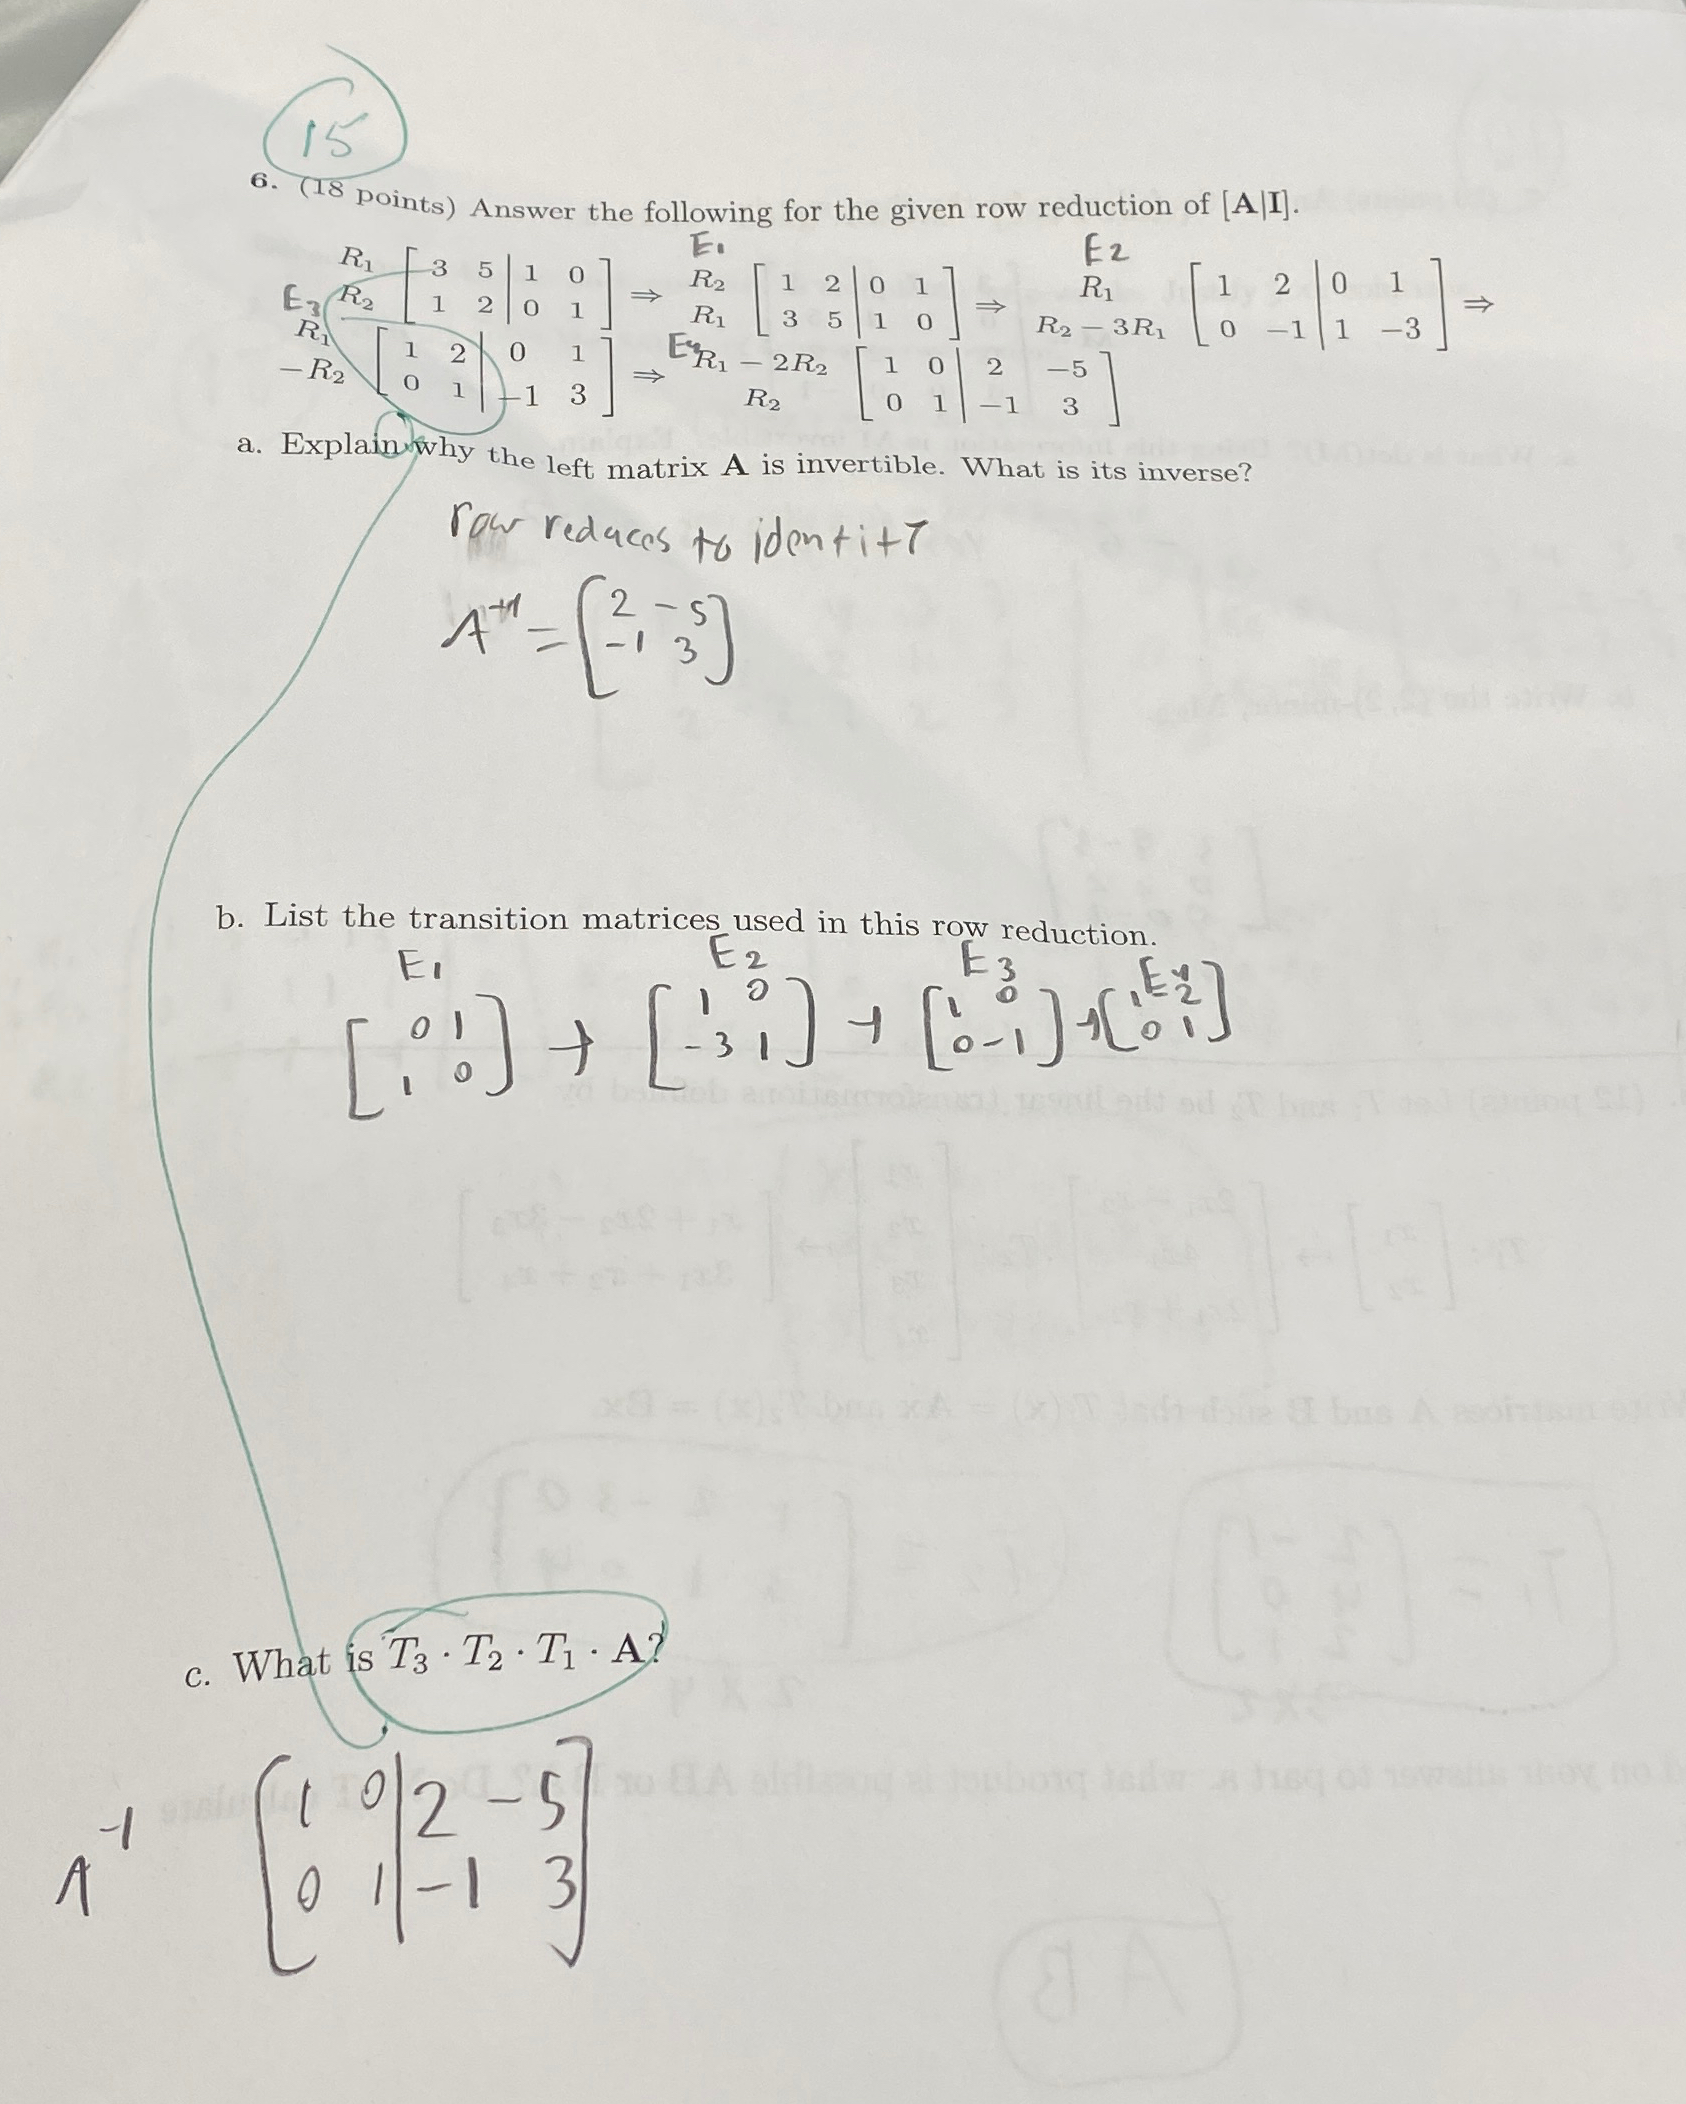 15
6. (18 points) Answer the following for the given row reduction of [A|I].
E1 E2
R1 [ 3 5 | 1 0 ] ⇒ R2 [ 1 2 | 0 1 ] ⇒ R1 [ 1 2 | 0 1 ] ⇒
E3 R2 [ 1 2 | 0 1 ] R1 [ 3 5 | 1 0 ] R2 − 3R1 [ 0 −1 | 1 −3 ]
R1 [ 1 2 | 0 1 ] ⇒ E4 R1 − 2R2 [ 1 0 | 2 −5 ]
−R2 [ 0 1 | −1 3 ] R2 [ 0 1 | −1 3 ]
a. Explain why the left matrix A is invertible. What is its inverse?
row reduces to identity
A = [ 2 −5
−1 3 ]
b. List the transition matrices used in this row reduction.
E1 E2 E3 E4
[ 0 1 ] → [ 1 0 ] → [ 1 0 ] → [ 1 2 ]
[ 1 0 ] [ −3 1 ] [ 0 −1 ] [ 0 1 ]
c. What is T3 · T2 · T1 · A?
A⁻¹ [ 1 0 | 2 −5 ]
[ 0 1 | −1 3 ]